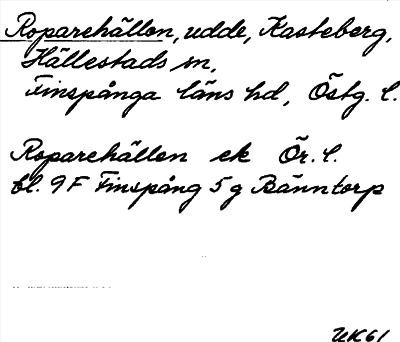 Roparehällen, udde, Kasteberg,
Hällestads sn,
Finspånga läns hd, Östg. l.
Roparehällen ek Ör. l.
bl. 9 F Finspång 5 g Bänntorp
UK61